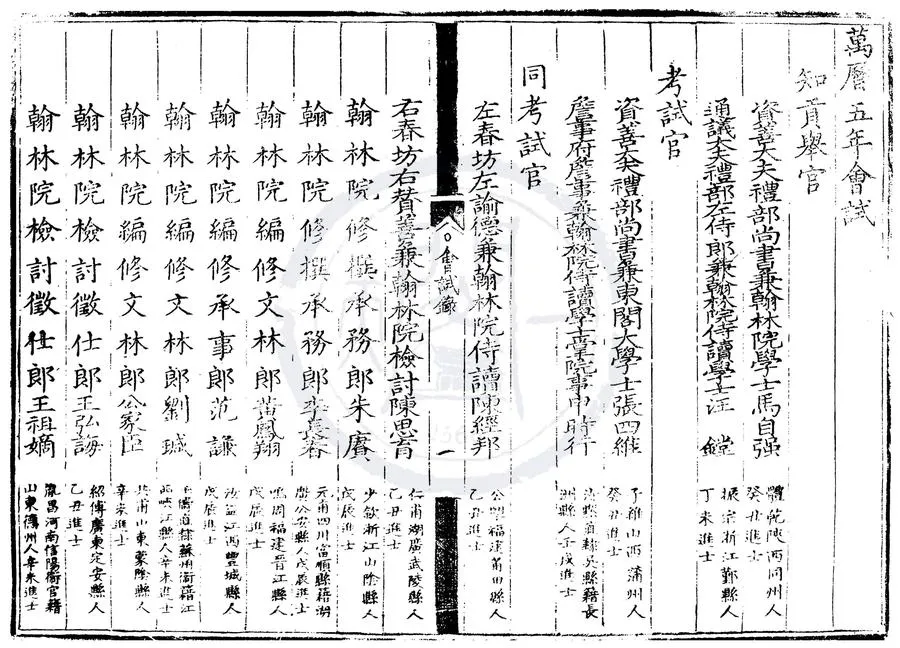 萬曆五年會試
知貢舉官
資善大夫禮部尚書兼翰林院學士馬自强
體乾陝西同州人
癸丑進士
通議大夫禮部左侍郎兼翰林院侍讀學士汪鏜
振宗浙江鄞縣人
丁未進士
考試官
資善大夫禮部尚書兼東閣大學士張四維
子維山西蒲州人
癸丑進士
詹事府詹事兼翰林院侍讀學士掌院事申時行
汝默直隸吳縣籍長
洲縣人壬戌進士
同考試官
左春坊左諭德兼翰林院侍讀陳經邦
公望福建莆田縣人
乙丑進士
會試錄
一
右春坊右贊善兼翰林院檢討陳思育
仁甫湖廣武陵縣人
乙丑進士
翰林院修撰承務郎朱賡
少欽浙江山陰縣人
戊辰進士
翰林院修撰承務郎李長春
元甫四川富順縣籍湖
廣公安縣人戊辰進士
翰林院編修文林郎黃鳳翔
鳴周福建晉江縣人
戊辰進士
翰林院編修承事郎范謙
汝益江西豐城縣人
戊辰進士
翰林院編修文林郎劉瑊
直隸蘇州衛籍江
西峽江縣人辛未進士
翰林院編修文林郎公家臣
共甫山東蒙陰縣人
辛未進士
翰林院檢討徵仕郎王弘誨
紹傳廣東定安縣人
乙丑進士
翰林院檢討徵仕郎王祖嫡
胤昌河南信陽衛官籍
山東德州人辛未進士